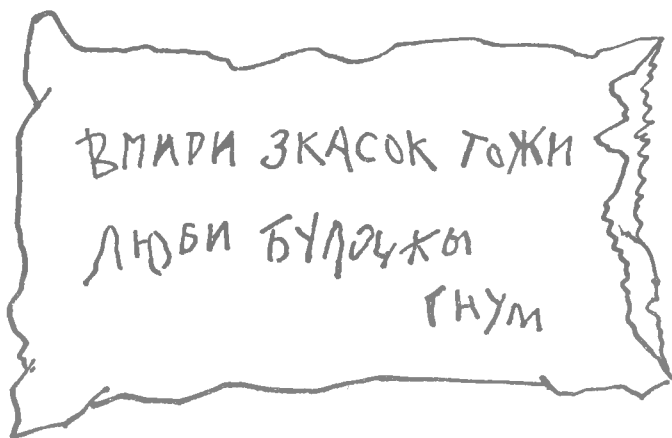 ВМИРИ ЗКАСОК ТОЖИ
ЛЮБИ БУЛОЧКЫ
ГНУМ